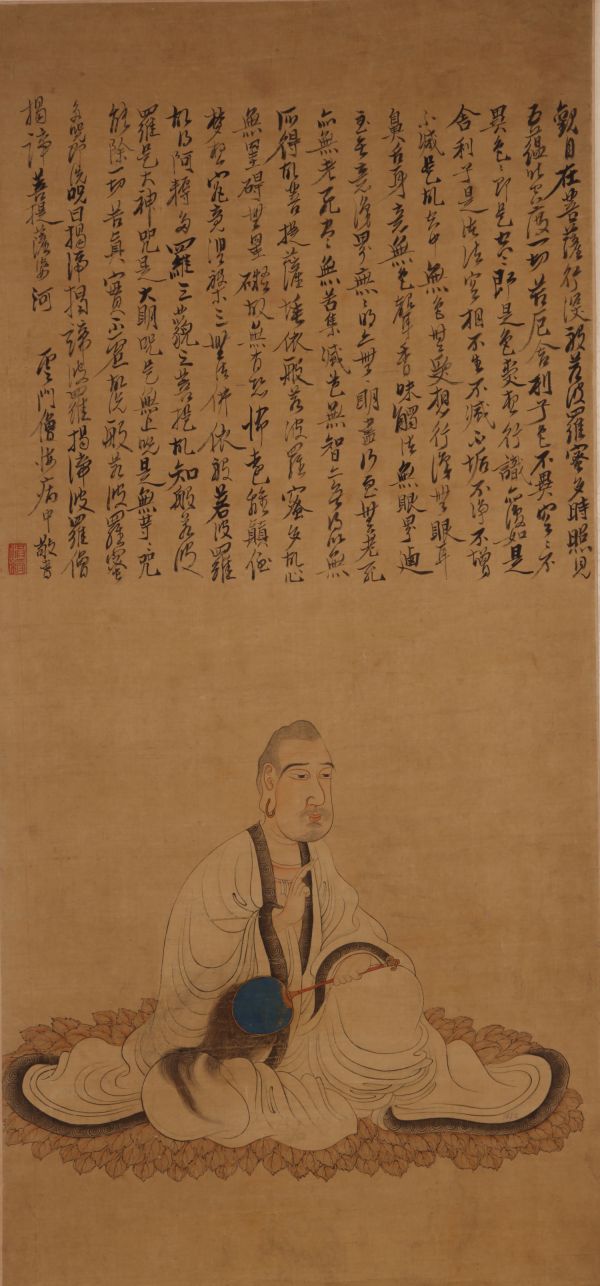 觀自在菩薩行深般若波羅蜜多時照見
五蘊皆空度一切苦厄舍利子色不異空〻不
異色〻即是空〻即是色受想行識亦復如是
舍利子是諸法空相不生不滅不垢不淨不增
不減是故空中無色無受想行識無眼耳
鼻舌身意無色聲香味觸法無眼界迺
至無意識界無〻明亦無明盡乃至無老死
亦無老死盡無苦集滅道無智亦無得以無
所得故菩提薩埵依般若波羅蜜多故心
無罣碍無罣礙故無有恐怖遠離顛倒
夢想究竟涅槃三世諸佛依般若波羅
故得阿耨多羅三藐三菩提故知般若波
羅是大神咒是大明咒是無上咒是無等〻咒
能除一切苦真實不虛故說般若波羅蜜
多咒即說咒曰揭諦揭諦波羅揭諦波羅僧
揭諦菩提薩婆河 雲門僧悔病中敬書